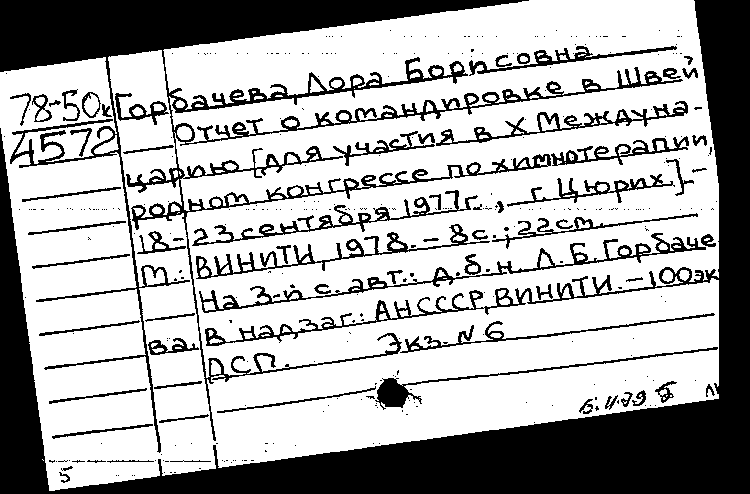 78-50к
4572
Горбачева, Лора Борисовна
Отчет о командировке в Швей
царию [для участия в X Междуна-
родном конгрессе по химиотерапии,
18-23 сентября 1977г., г. Цюрих.].-
М.: ВИНИТИ, 1978. - 8с.; 22см.
На 3-й с. авт.: д.б.н. Л.Б. Горбаче
ва. В надзаг.: АНСССР, ВИНИТИ. - 100эк
ДСП. Экз. N 6
5